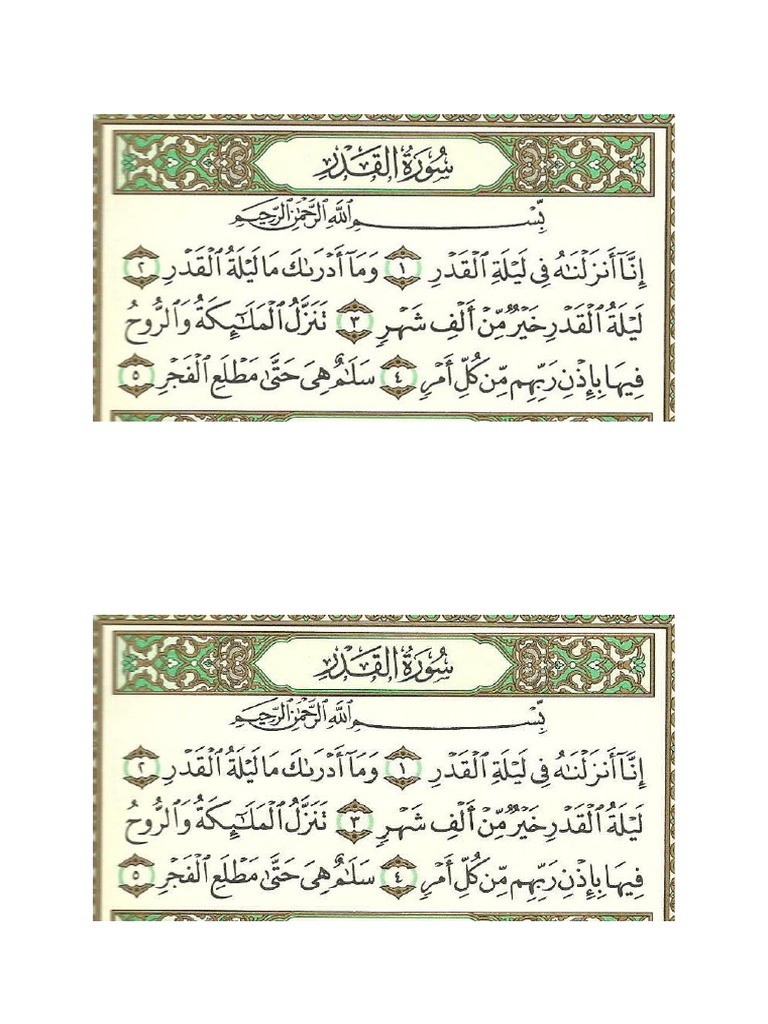 سُورَةُ القَدْرِ
بِسْمِ ٱللَّهِ ٱلرَّحْمَٰنِ ٱلرَّحِيمِ
إِنَّآ أَنزَلْنَٰهُ فِى لَيْلَةِ ٱلْقَدْرِ ١ وَمَآ أَدْرَىٰكَ مَا لَيْلَةُ ٱلْقَدْرِ ٢
لَيْلَةُ ٱلْقَدْرِ خَيْرٌ مِّنْ أَلْفِ شَهْرٍ ٣ تَنَزَّلُ ٱلْمَلَٰٓئِكَةُ وَٱلرُّوحُ
فِيهَا بِإِذْنِ رَبِّهِم مِّن كُلِّ أَمْرٍ ٤ سَلَٰمٌ هِىَ حَتَّىٰ مَطْلَعِ ٱلْفَجْرِ ٥
سُورَةُ القَدْرِ
بِسْمِ ٱللَّهِ ٱلرَّحْمَٰنِ ٱلرَّحِيمِ
إِنَّآ أَنزَلْنَٰهُ فِى لَيْلَةِ ٱلْقَدْرِ ١ وَمَآ أَدْرَىٰكَ مَا لَيْلَةُ ٱلْقَدْرِ ٢
لَيْلَةُ ٱلْقَدْرِ خَيْرٌ مِّنْ أَلْفِ شَهْرٍ ٣ تَنَزَّلُ ٱلْمَلَٰٓئِكَةُ وَٱلرُّوحُ
فِيهَا بِإِذْنِ رَبِّهِم مِّن كُلِّ أَمْرٍ ٤ سَلَٰمٌ هِىَ حَتَّىٰ مَطْلَعِ ٱلْفَجْرِ ٥